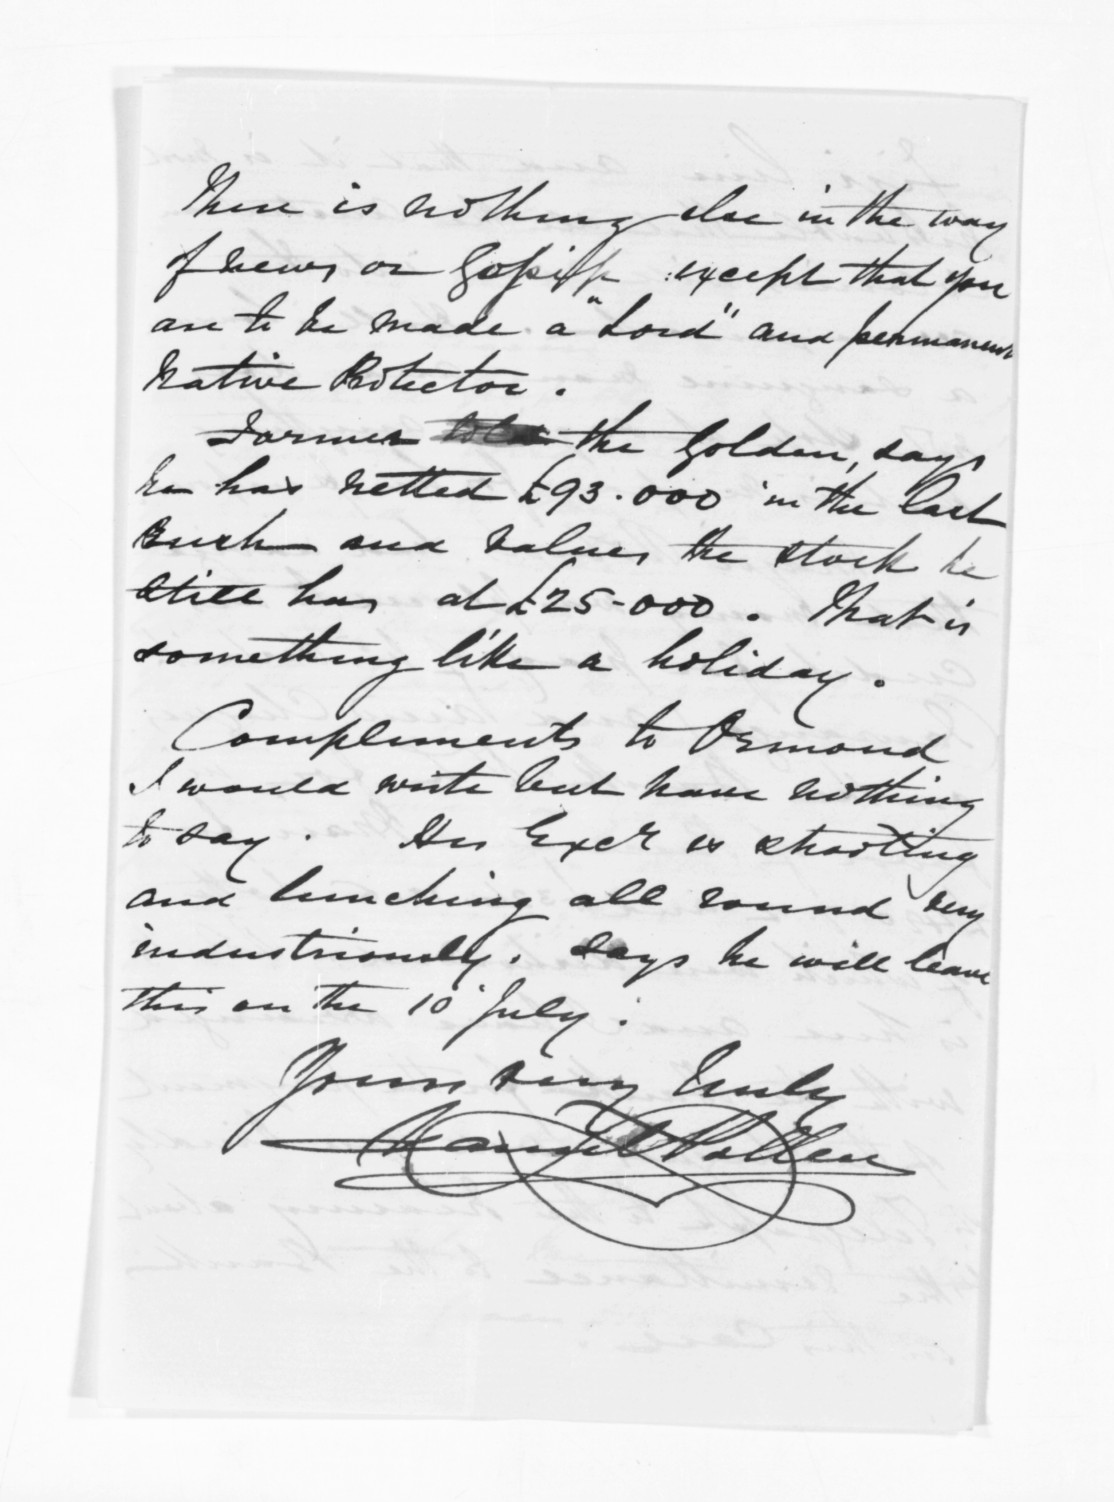 There is nothing else in the way
of news or Gossip except that you
are to be made a "Lord" and permanent
Native Protector.
Farmer the Golden, says
he has netted £93.000 in the last
Rush and values the stock he
still has at £25-000. That is
something like a holiday.
Compliments to Ormond
I would write but have nothing
to say. His Excy is shooting
and lunching all round very
industriously. Says he will leave
this on the 10 July.
Yours very truly
Daniel Pollen